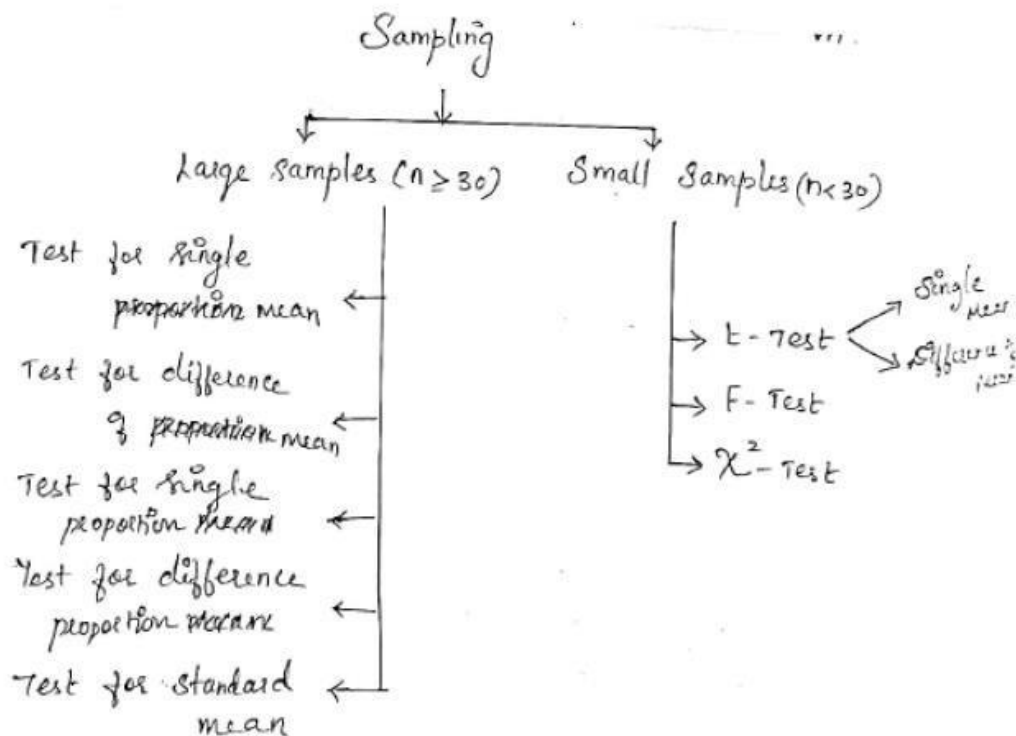 Sampling
Large samples (n ≥ 30)
Small samples (n < 30)
Test for single
proportion mean
Test for difference
of proportion mean
Test for single
proportion mean
Test for difference
proportion
Test for standard
mean
t - Test
Single
F - Test
χ² - Test